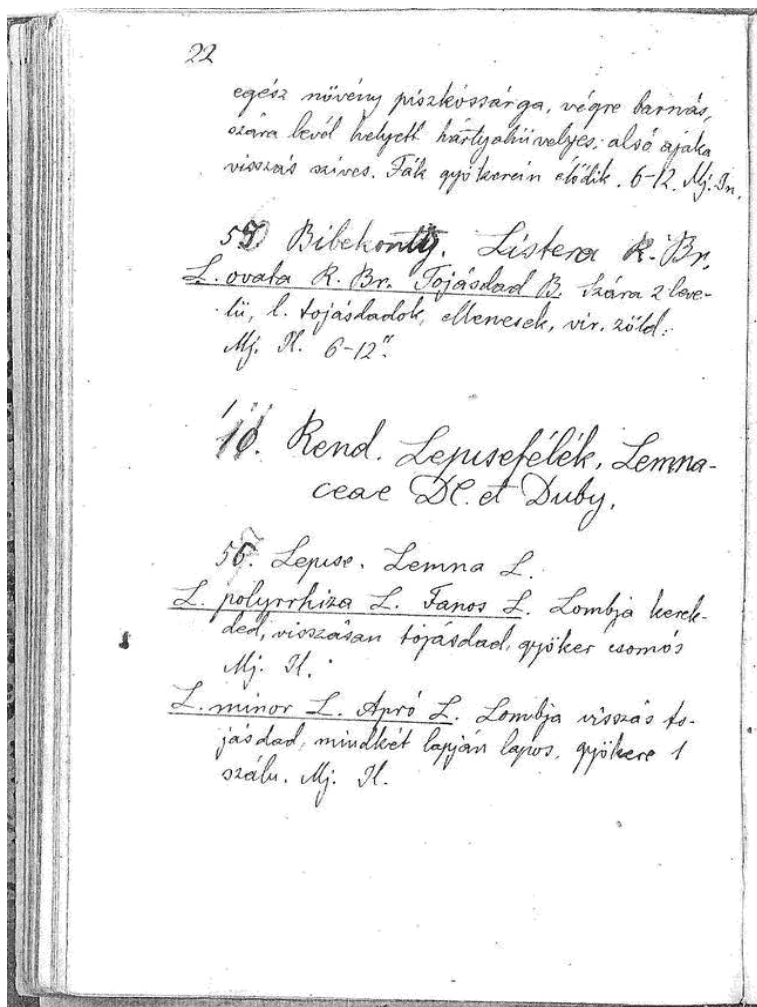 22
egész növény piszkossárga, végre barnás,
szára levél helyett hártyahüvelyes; alsó ajaka
visszás szives. Fák gyökerein élődik. 6-12. Mj. Jn.
Bibekonty. Listera R. Br.
L. ovata R. Br. Tojásdad B. Szára 2 leve-
lü, l. tojásdadok, ellenesek, vir. zöld.
Mj. Jl. 6-12".
Rend. Lepusefélék, Lemna-
ceae DC. et Duby.
56. Lepuse. Lemna L.
L. polyrrhiza L. Fanos L. Lombja kerek-
ded, visszásan tojásdad, gyöker csomós
Mj. Jl.
L. minor L. Apró L. Lombja visszás to-
jásdad, mindkét lapján lapos, gyökere 1
szálu. Mj. Jl.